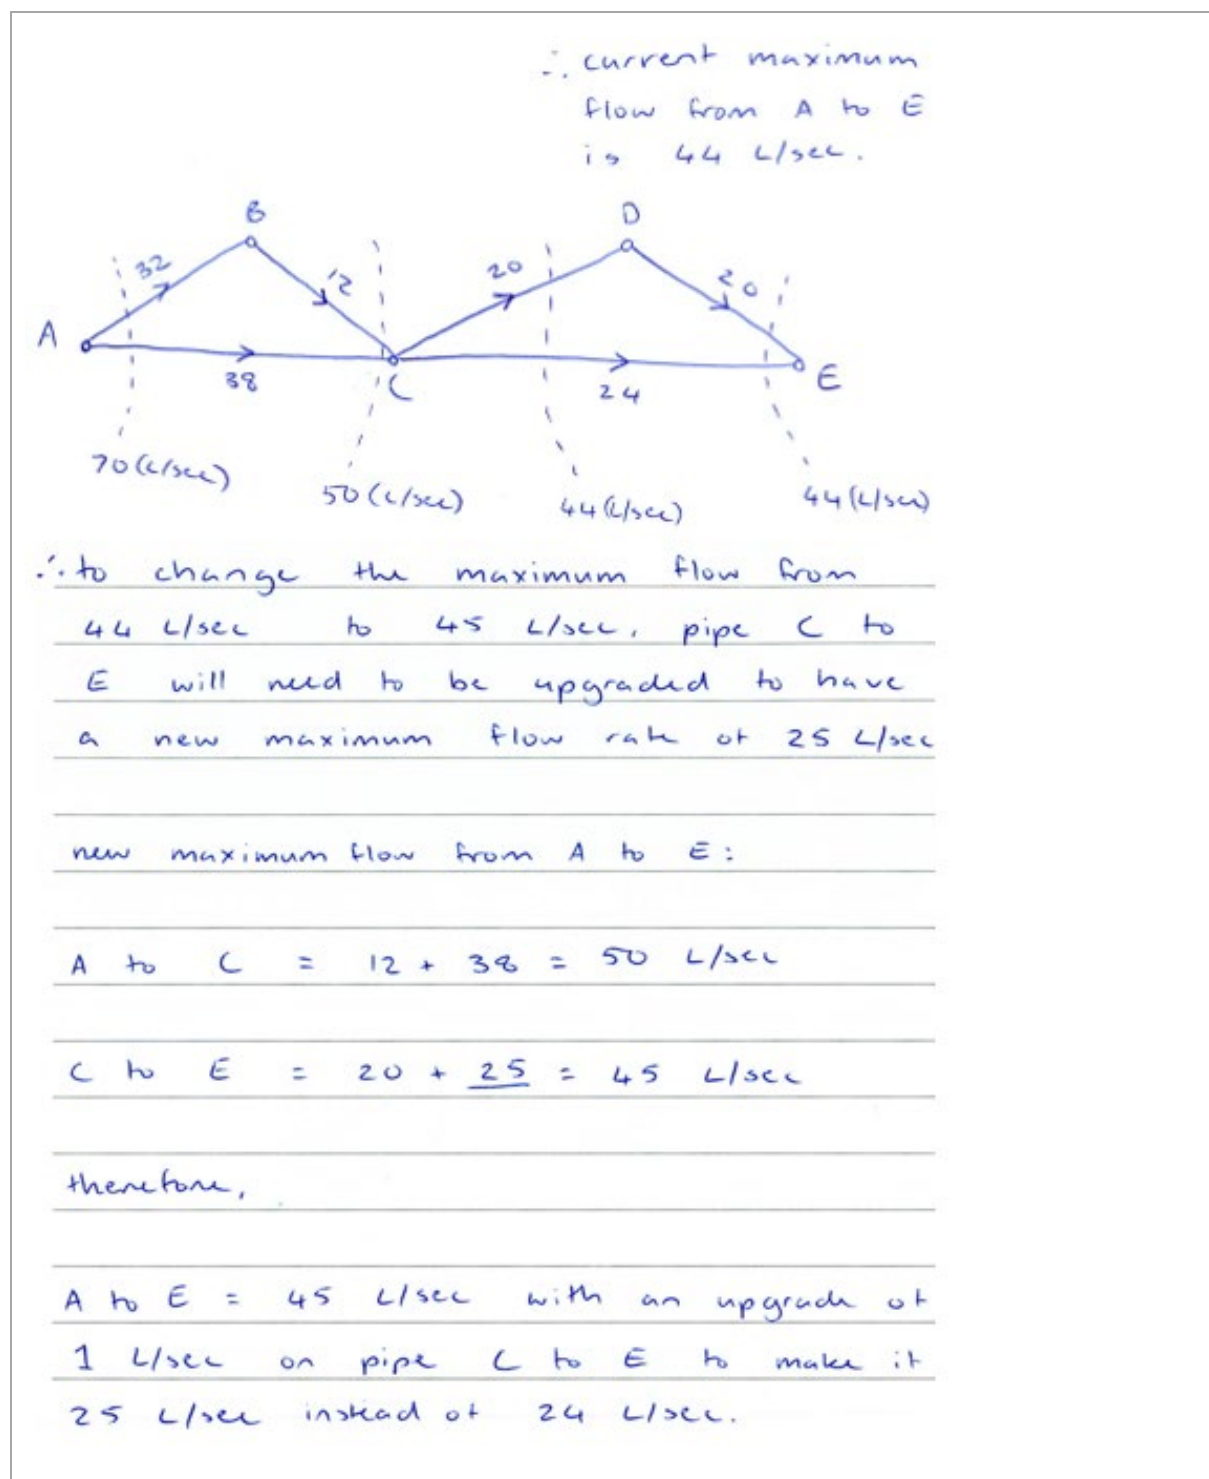 ∴ current maximum
flow from A to E
is 44 L/sec.
B
D
32
12
20
20
A
38
C
24
E
70 (L/sec)
50 (L/sec)
44 (L/sec)
44 (L/sec)
∴ to change the maximum flow from
44 L/sec to 45 L/sec, pipe C to
E will need to be upgraded to have
a new maximum flow rate of 25 L/sec
new maximum flow from A to E:
A to C = 12 + 38 = 50 L/sec
C to E = 20 + 25 = 45 L/sec
therefore,
A to E = 45 L/sec with an upgrade of
1 L/sec on pipe C to E to make it
25 L/sec instead of 24 L/sec.